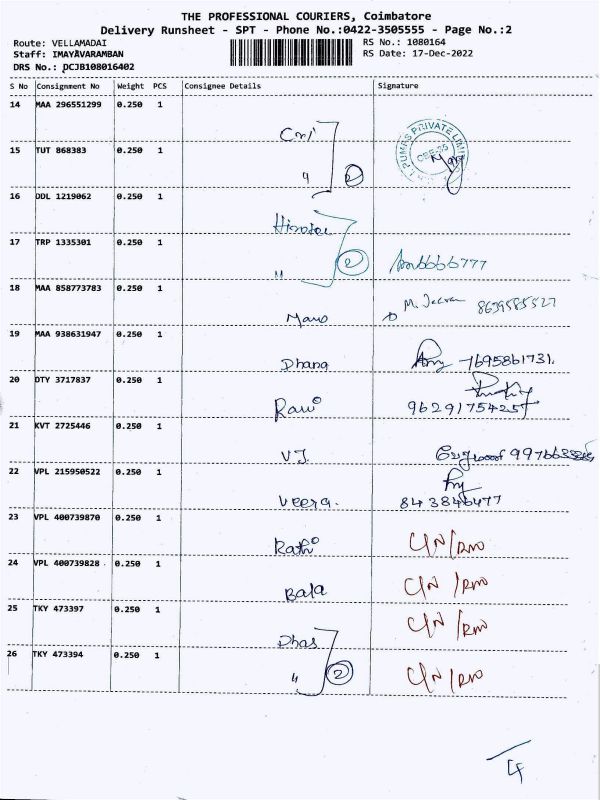 THE PROFESSIONAL COURIERS, Coimbatore
Delivery Runsheet - SPT - Phone No.:0422-3505555 - Page No.:2
Route: VELLAMADAI RS No.: 1080164
Staff: IMAYAVARAMBAN RS Date: 17-Dec-2022
DRS No.: DCJB108016402
S No Consignment No Weight PCS Consignee Details Signature
14 MAA 296551299 0.250 1
Cri PUMPS PRIVATE LIMI
15 TUT 868383 0.250 1
" 2
16 DDL 1219062 0.250 1
17 TRP 1335301 0.250 1
" 2
18 MAA 858773783 0.250 1
Mano
19 MAA 938631947 0.250 1
Dhana 7695861731
20 DTY 3717837 0.250 1
Ravi 9629175425
21 KVT 2725446 0.250 1
VJ.
22 VPL 215950522 0.250 1
Veera.
23 VPL 400739870 0.250 1
Rathi C/N/RNO
24 VPL 400739828 0.250 1
Bala C/N/RNO
25 TKY 473397 0.250 1
Dhas C/N/RNO
26 TKY 473394 0.250 1
" 2 C/N/RNO